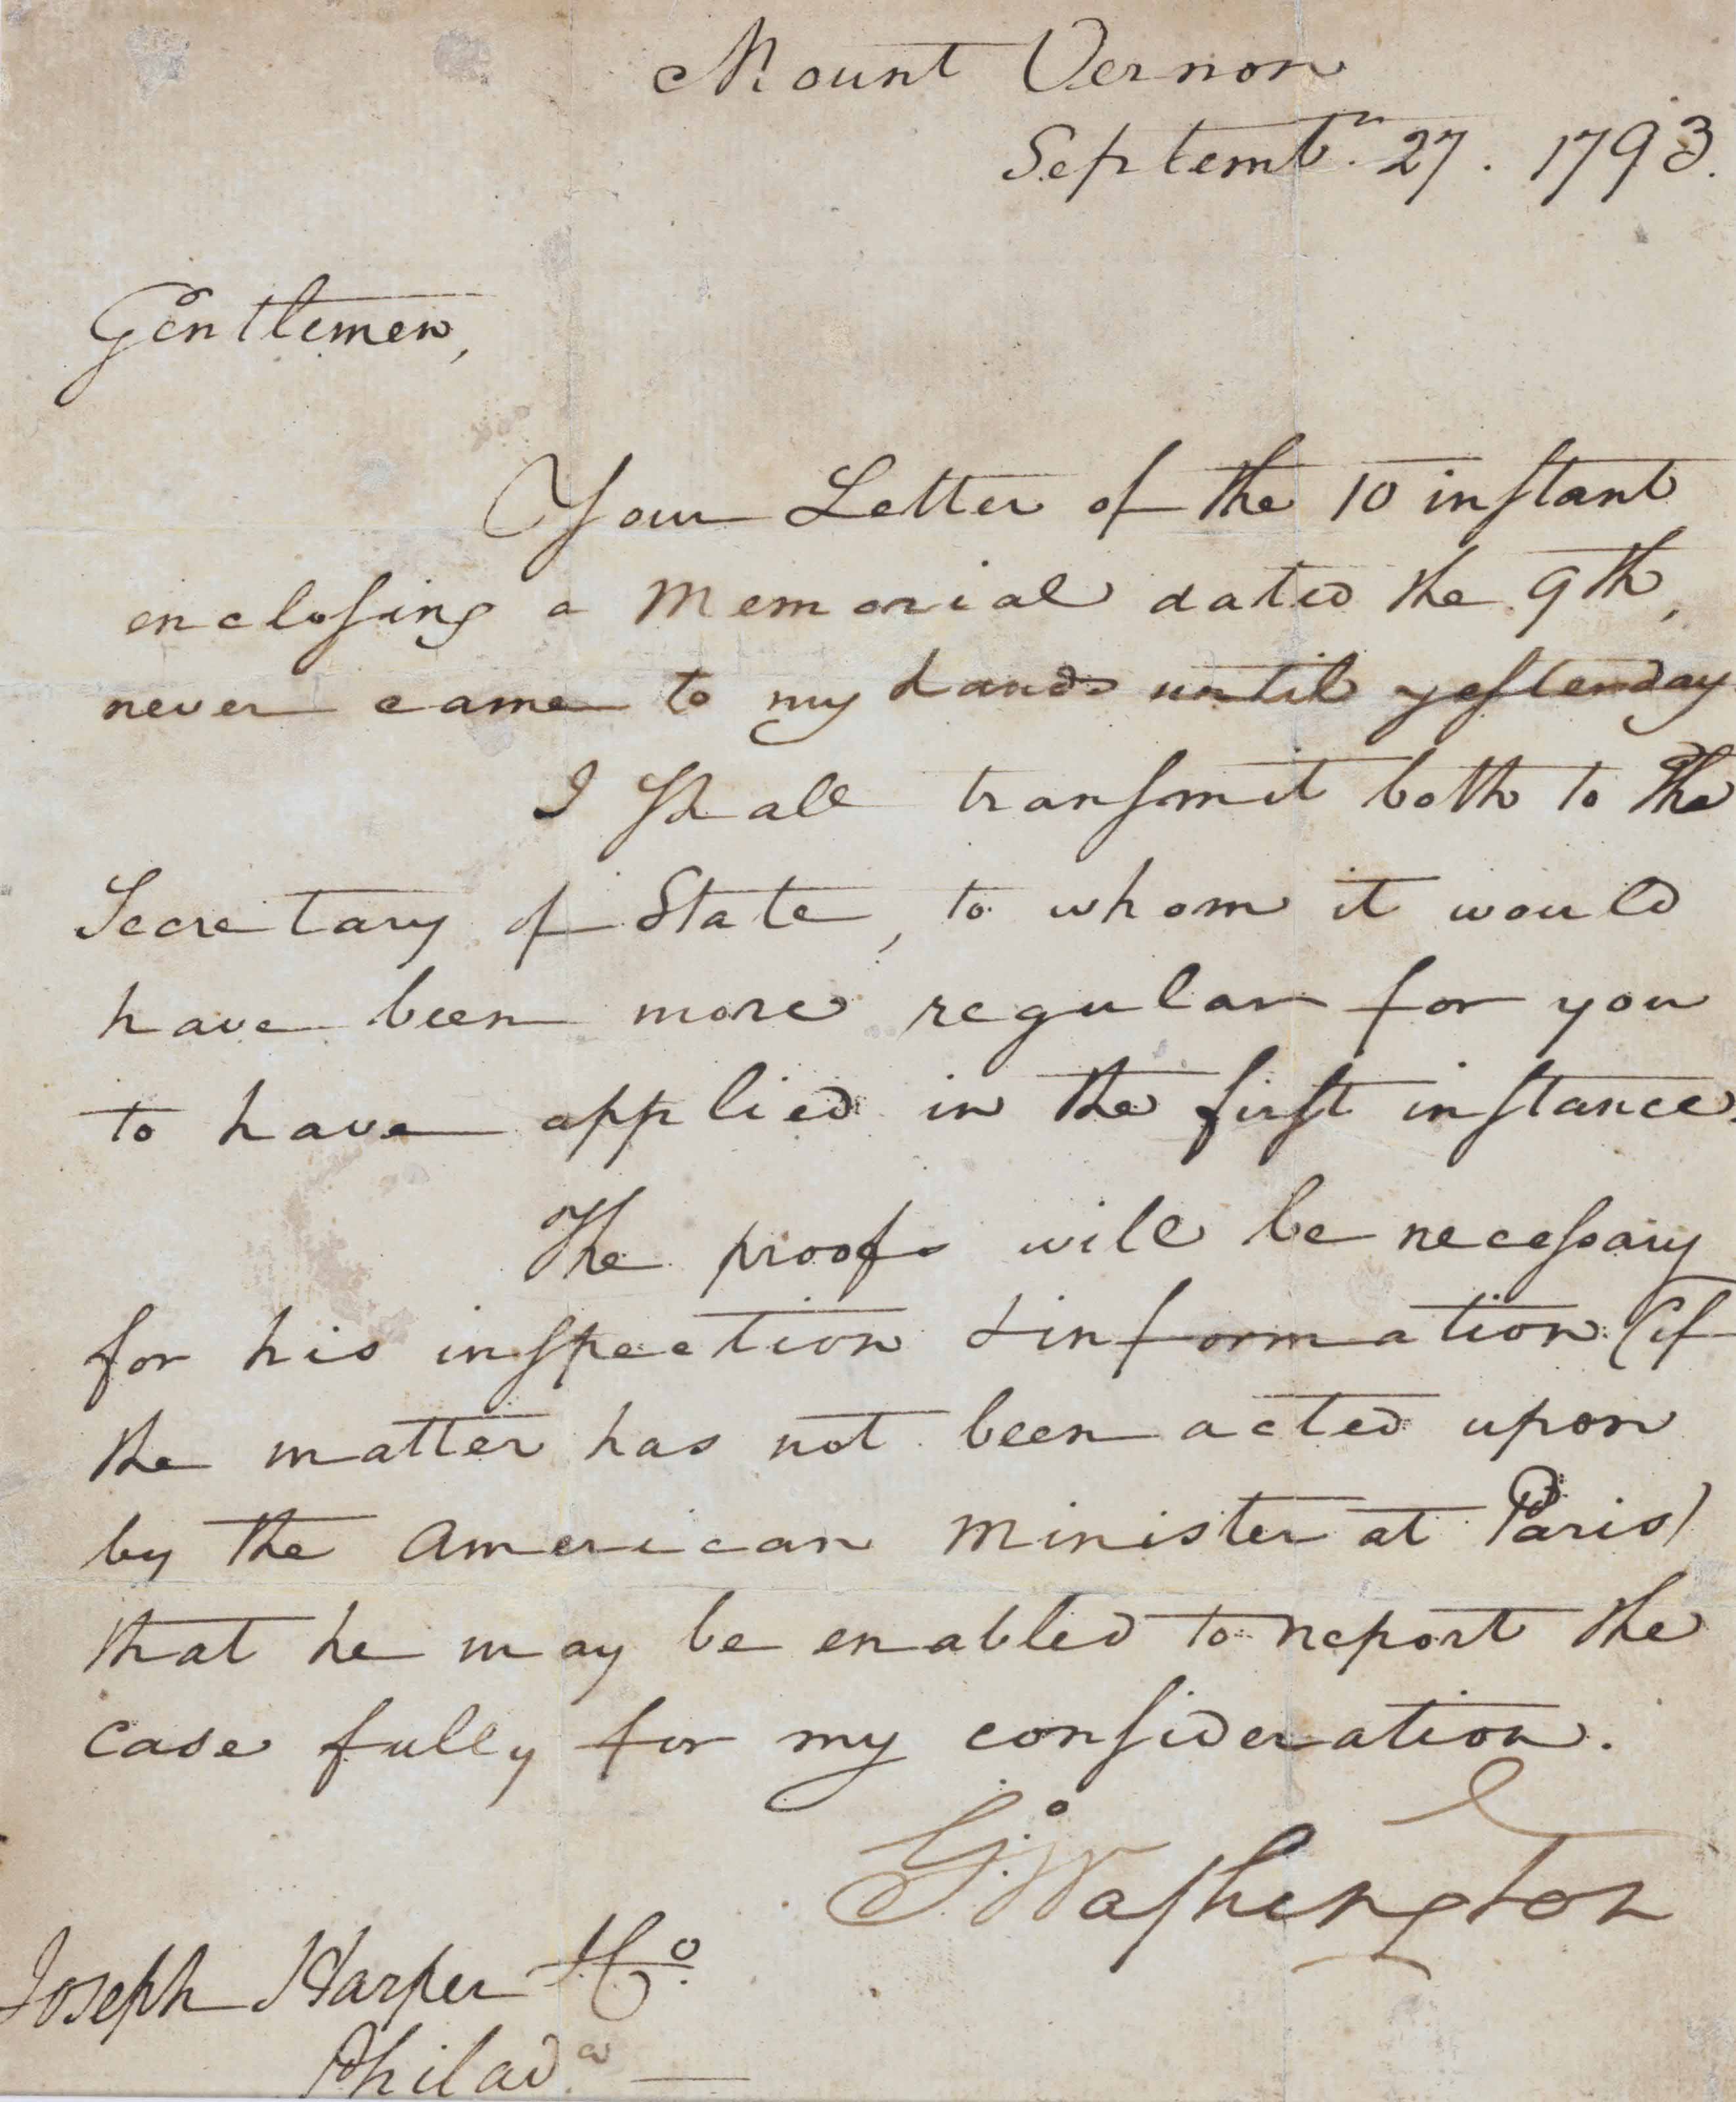 Mount Vernon
Septemb.r 27. 1793.
Gentlemen,
Your Letter of the 10 inſtant
encloſing a Memorial dated the 9th,
never came to my hands until yeſterday
I ſhall tranſmit both to the
Secretary of State, to whom it would
have been more regular for you
to have applied in the firſt inſtance.
The proofs will be neceſsary
for his inſpection & information (if
the matter has not been acted upon
by the American Minister at Paris)
that he may be enabled to report the
case fully for my conſideration.
G.Waſhington
Joseph Harper & Co.
Philad.a